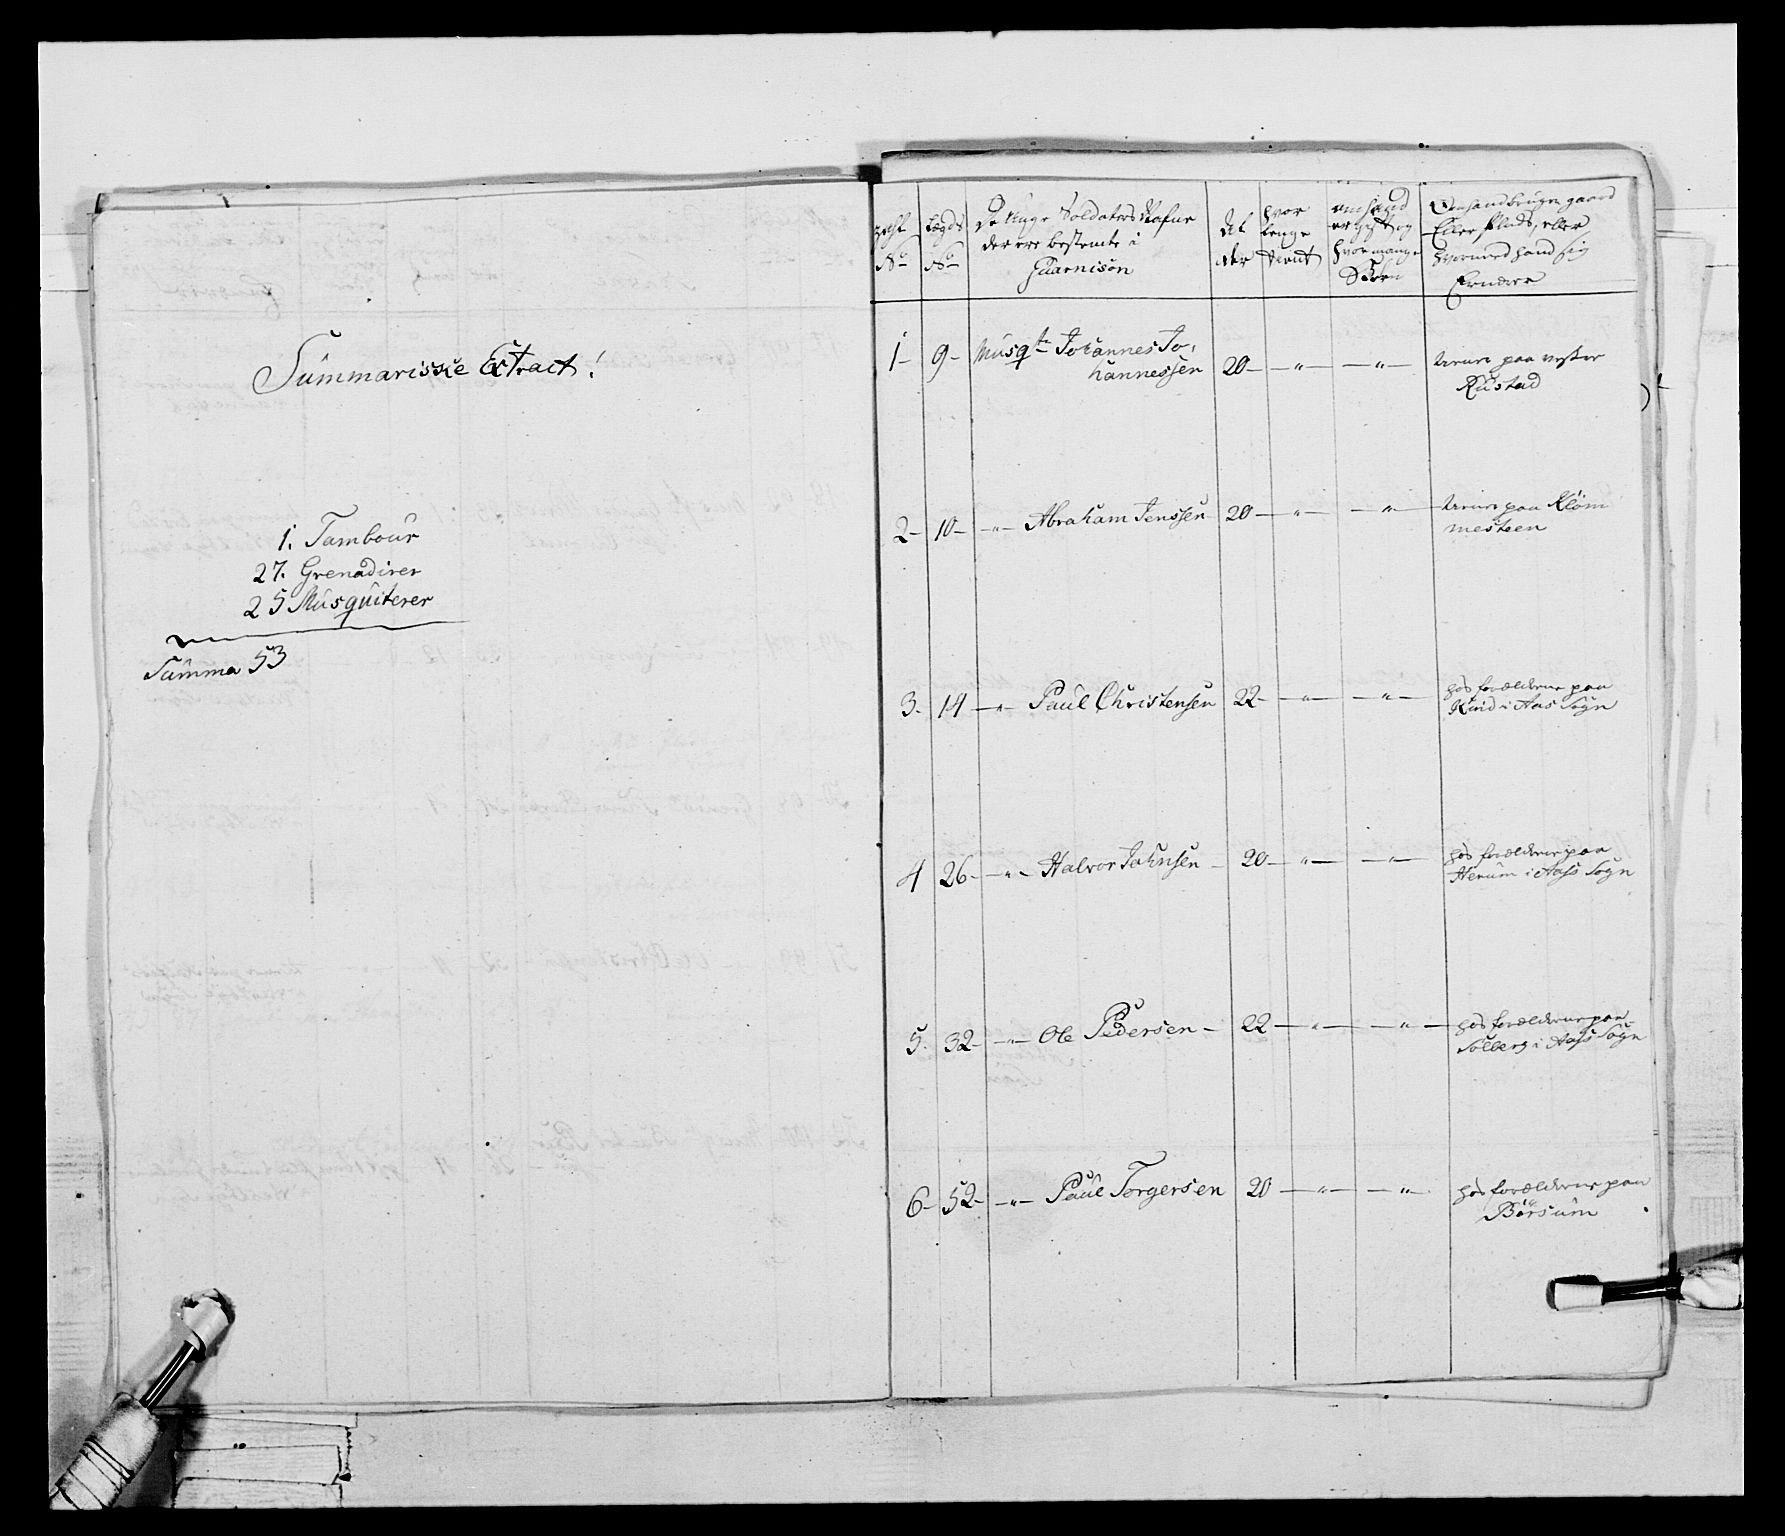 Summariske Extract!
1. Tambour
27. Grenadirer
25 Musquiterer
Summa 53
No
Lægds No
De Unge Soldaters Nafne
der ere bestemte i
Guarnison
Al
der
hvor
lenge
tient
om hand
er gift og
hvor mange
Børn
Om hand bruger gaard
Eller Plads, eller
hvormed hand sig
Ernærer
1 - 9 - Musqtr Johannes Jo,
hannessen 20 - " - - " - tiener paa vester
Rustad
2 - 10 - - " - Abraham Jenssen 20 - " - - " - tiener paa Klom
mesteen
3. 14 - " - Paul Christensen 22 - " - - " - hos forældrene paa
Rud i Aas Sogn
4 26 - - " - Halvor Jahnsen - 20 - " - - " - hos forældrene paa
Herum i Aass Sogn
5. 32 - - " - Ole Pedersen - 22 - " - - " - hos forældrene paa
Solberg i Aass Sogn
6 - 52 - - " - Paul Torgersen 20 - " - - " - hos forældrene paa
Børsum